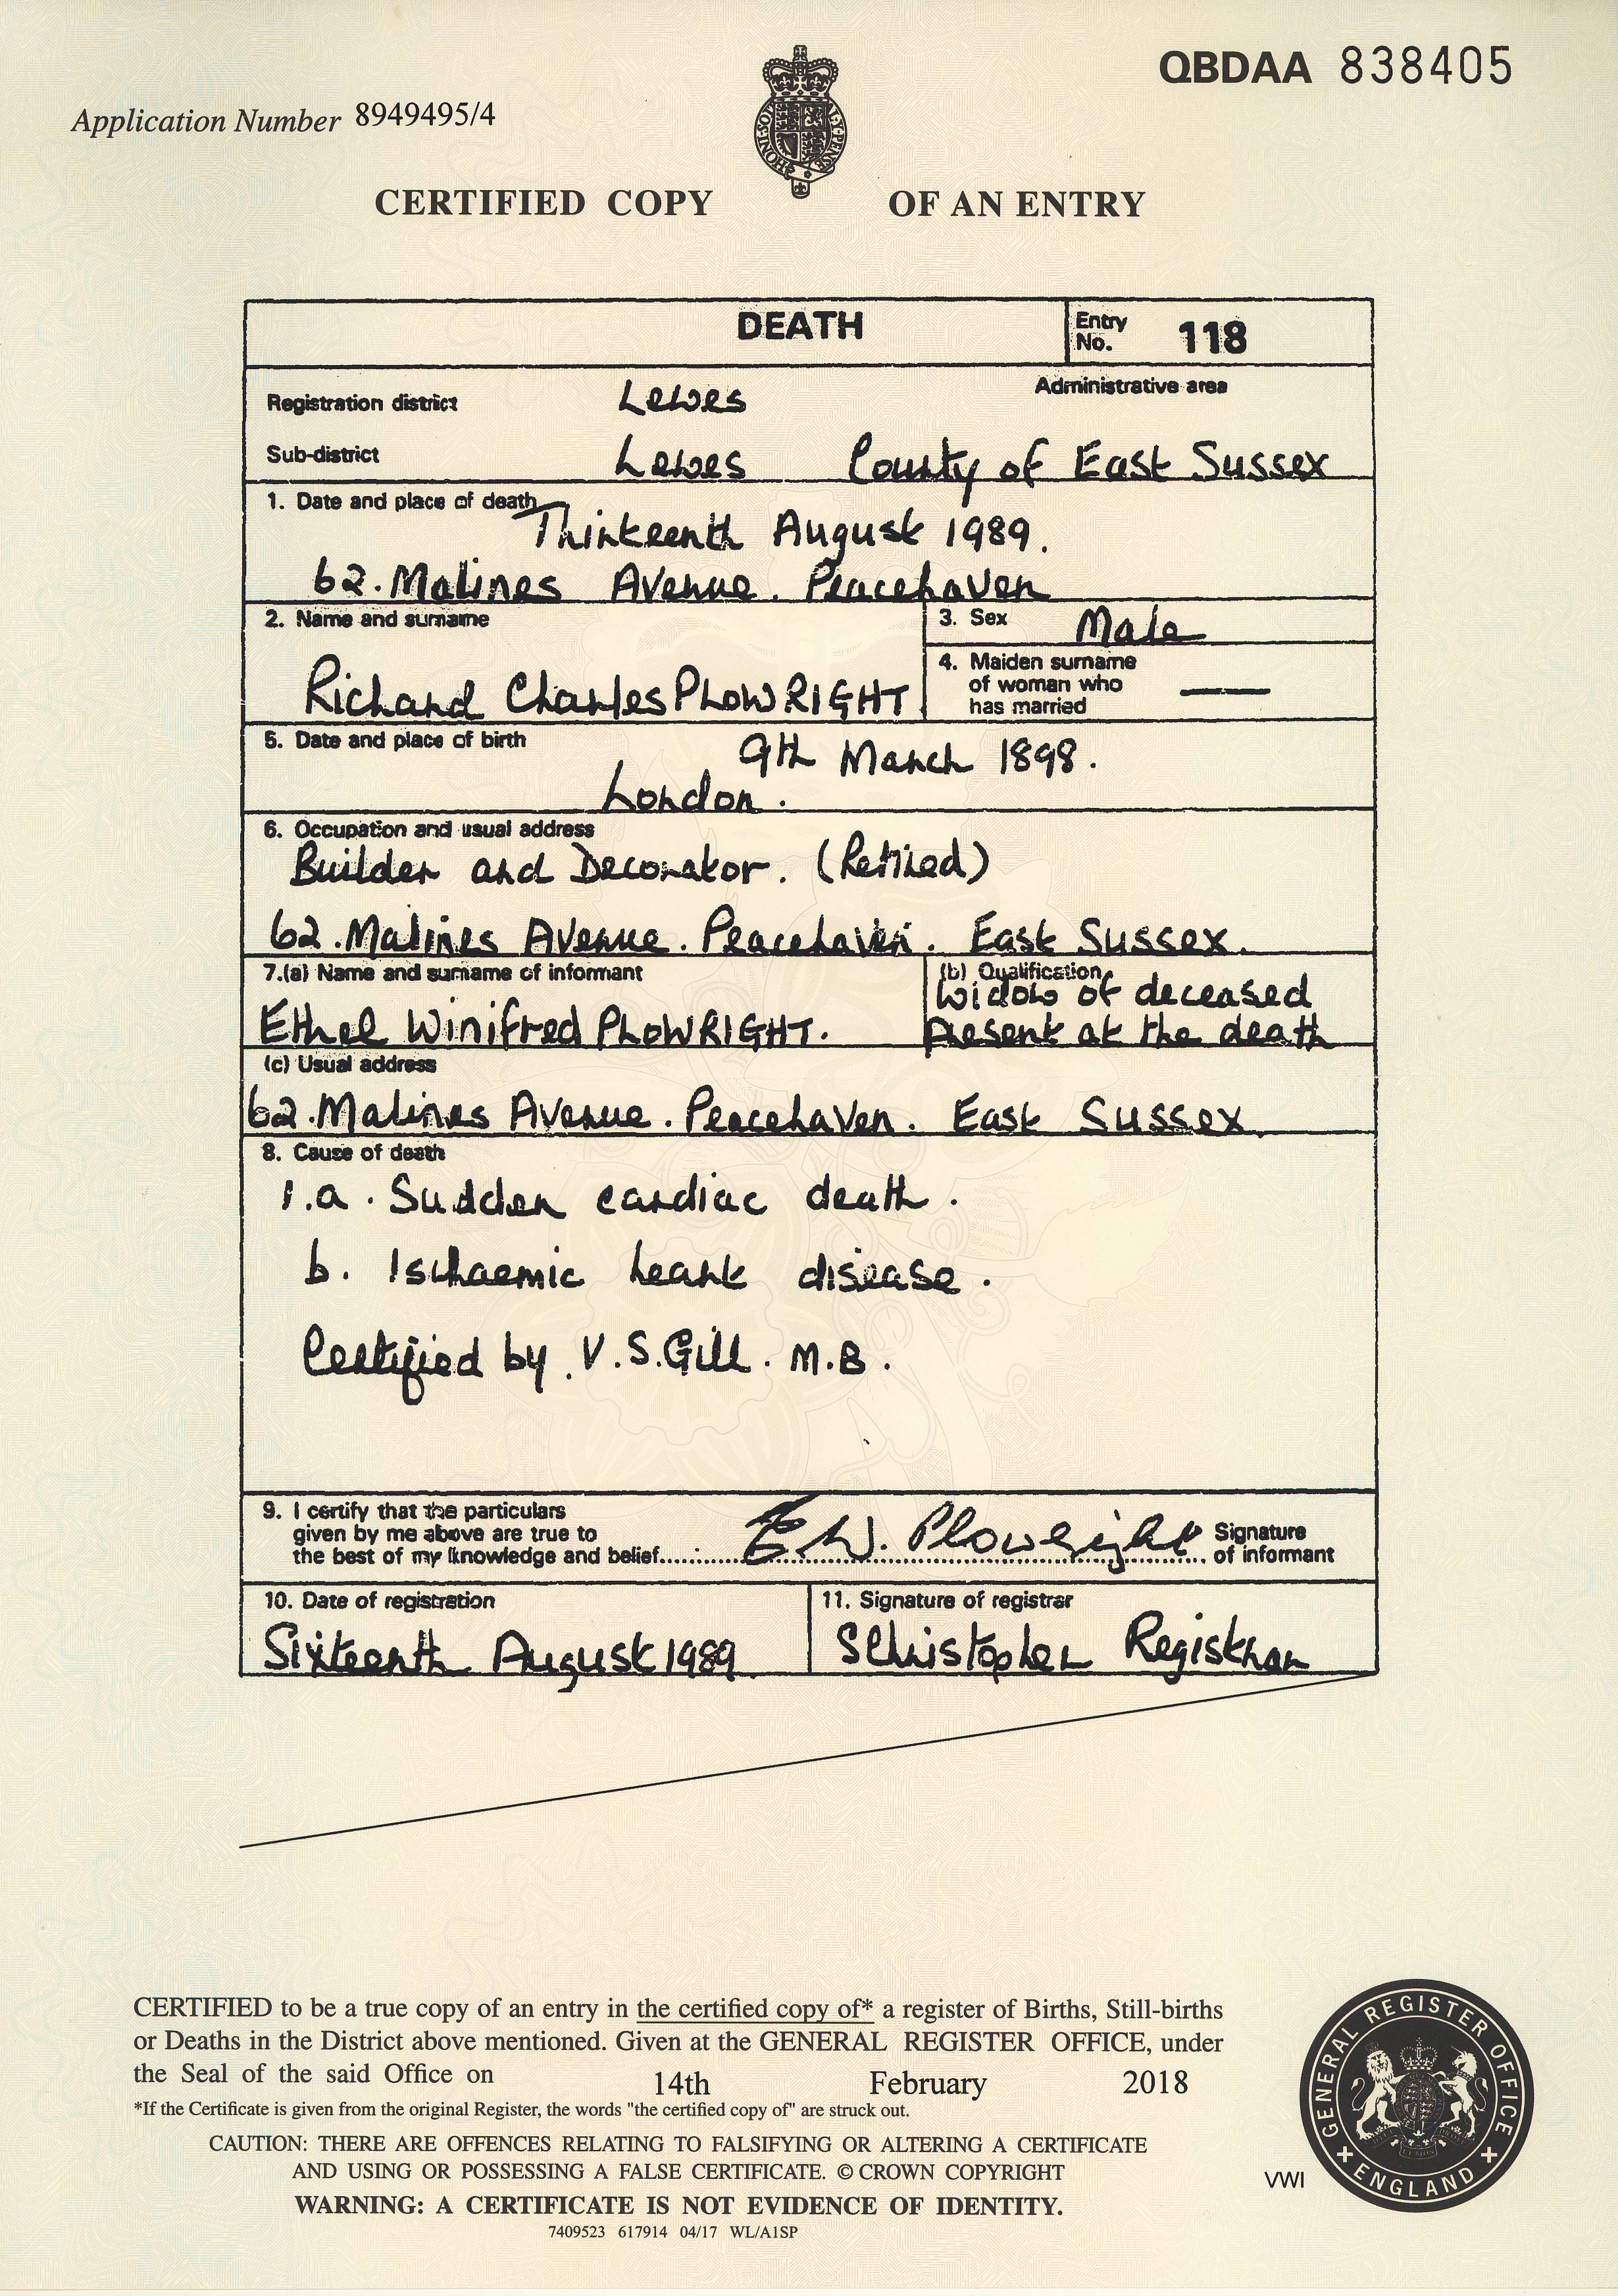 QBDAA 838405
Application Number 8949495/4
CERTIFIED COPY OF AN ENTRY
DEATH
Entry No. 118
Registration district Lewes
Administrative area
Sub-district Lewes County of East Sussex
1. Date and place of death
Thirteenth August 1989.
62. Malines Avenue. Peacehaven
2. Name and surname
Richard Charles PLOWRIGHT
3. Sex Male
4. Maiden surname
of woman who
has married —
5. Date and place of birth
9th March 1898.
London.
6. Occupation and usual address
Builder and Decorator. (Retired)
62. Malines Avenue. Peacehaven. East Sussex.
7.(a) Name and surname of informant
Ethel Winifred PLOWRIGHT.
(b) Qualification
Widow of deceased
Present at the death
(c) Usual address
62. Malines Avenue. Peacehaven. East Sussex.
8. Cause of death
1.a. Sudden cardiac death.
b. Ischaemic heart disease.
Certified by V.S. Gill. M.B.
9. I certify that the particulars
given by me above are true to
the best of my knowledge and belief. E W. Plowright Signature
of informant
10. Date of registration
Sixteenth August 1989.
11. Signature of registrar
S Christopher Registrar
CERTIFIED to be a true copy of an entry in the certified copy of* a register of Births, Still-births
or Deaths in the District above mentioned. Given at the GENERAL REGISTER OFFICE, under
the Seal of the said Office on 14th February 2018
*If the Certificate is given from the original Register, the words "the certified copy of" are struck out.
CAUTION: THERE ARE OFFENCES RELATING TO FALSIFYING OR ALTERING A CERTIFICATE
AND USING OR POSSESSING A FALSE CERTIFICATE. © CROWN COPYRIGHT
WARNING: A CERTIFICATE IS NOT EVIDENCE OF IDENTITY.
7409523 617914 04/17 WL/A1SP
VWI
GENERAL REGISTER OFFICE
ENGLAND